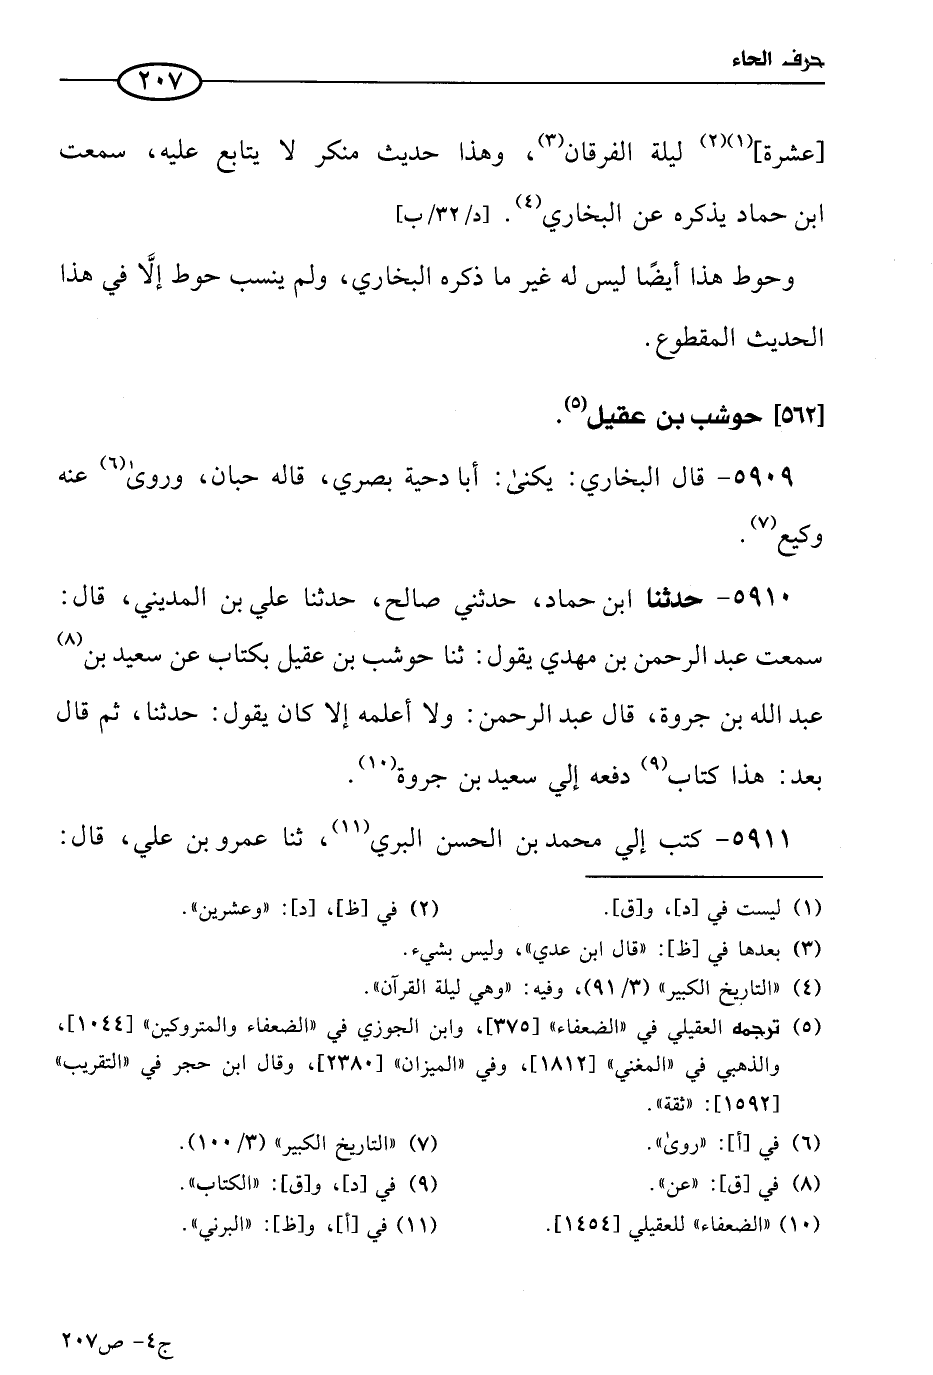 حرف الحاء
٢٠٧
[عشرة](١)(٢) ليلة الفرقان(٣)، وهذا حديث منكر لا يتابع عليه، سمعت
ابن حماد يذكره عن البخاري(٤). [د/٣٢/ب]
وحوط هذا أيضًا ليس له غير ما ذكره البخاري، ولم ينسب حوط إلَّا في هذا
الحديث المقطوع.
[٥٦٢] حوشب بن عقيل(٥).
٥٩٠٩- قال البخاري: يكنىٰ: أبا دحية بصري، قاله حبان، وروىٰ(٦) عنه
وكيع(٧).
٥٩١٠- حدثنا ابن حماد، حدثني صالح، حدثنا علي بن المديني، قال:
سمعت عبد الرحمن بن مهدي يقول: ثنا حوشب بن عقيل بكتاب عن سعيد بن(٨)
عبد الله بن جروة، قال عبد الرحمن: ولا أعلمه إلا كان يقول: حدثنا، ثم قال
بعد: هذا كتاب(٩) دفعه إلي سعيد بن جروة(١٠).
٥٩١١- كتب إلي محمد بن الحسن البري(١١)، ثنا عمرو بن علي، قال:
(١) ليست في [د]، و[ق]. (٢) في [ظ]، [د]: «وعشرين».
(٣) بعدها في [ظ]: «قال ابن عدي»، وليس بشيء.
(٤) «التاريخ الكبير» (٣/٩١)، وفيه: «وهي ليلة القرآن».
(٥) ترجمه العقيلي في «الضعفاء» [٣٧٥]، وابن الجوزي في «الضعفاء والمتروكين» [١٠٤٤]،
والذهبي في «المغني» [١٨١٢]، وفي «الميزان» [٢٣٨٠]، وقال ابن حجر في «التقريب»
[١٥٩٢]: «ثقة».
(٦) في [أ]: «روىٰ». (٧) «التاريخ الكبير» (٣/١٠٠).
(٨) في [ق]: «عن». (٩) في [د]، و[ق]: «الكتاب».
(١٠) «الضعفاء» للعقيلي [١٤٥٤]. (١١) في [أ]، و[ظ]: «البرني».
ج٤- ص٢٠٧